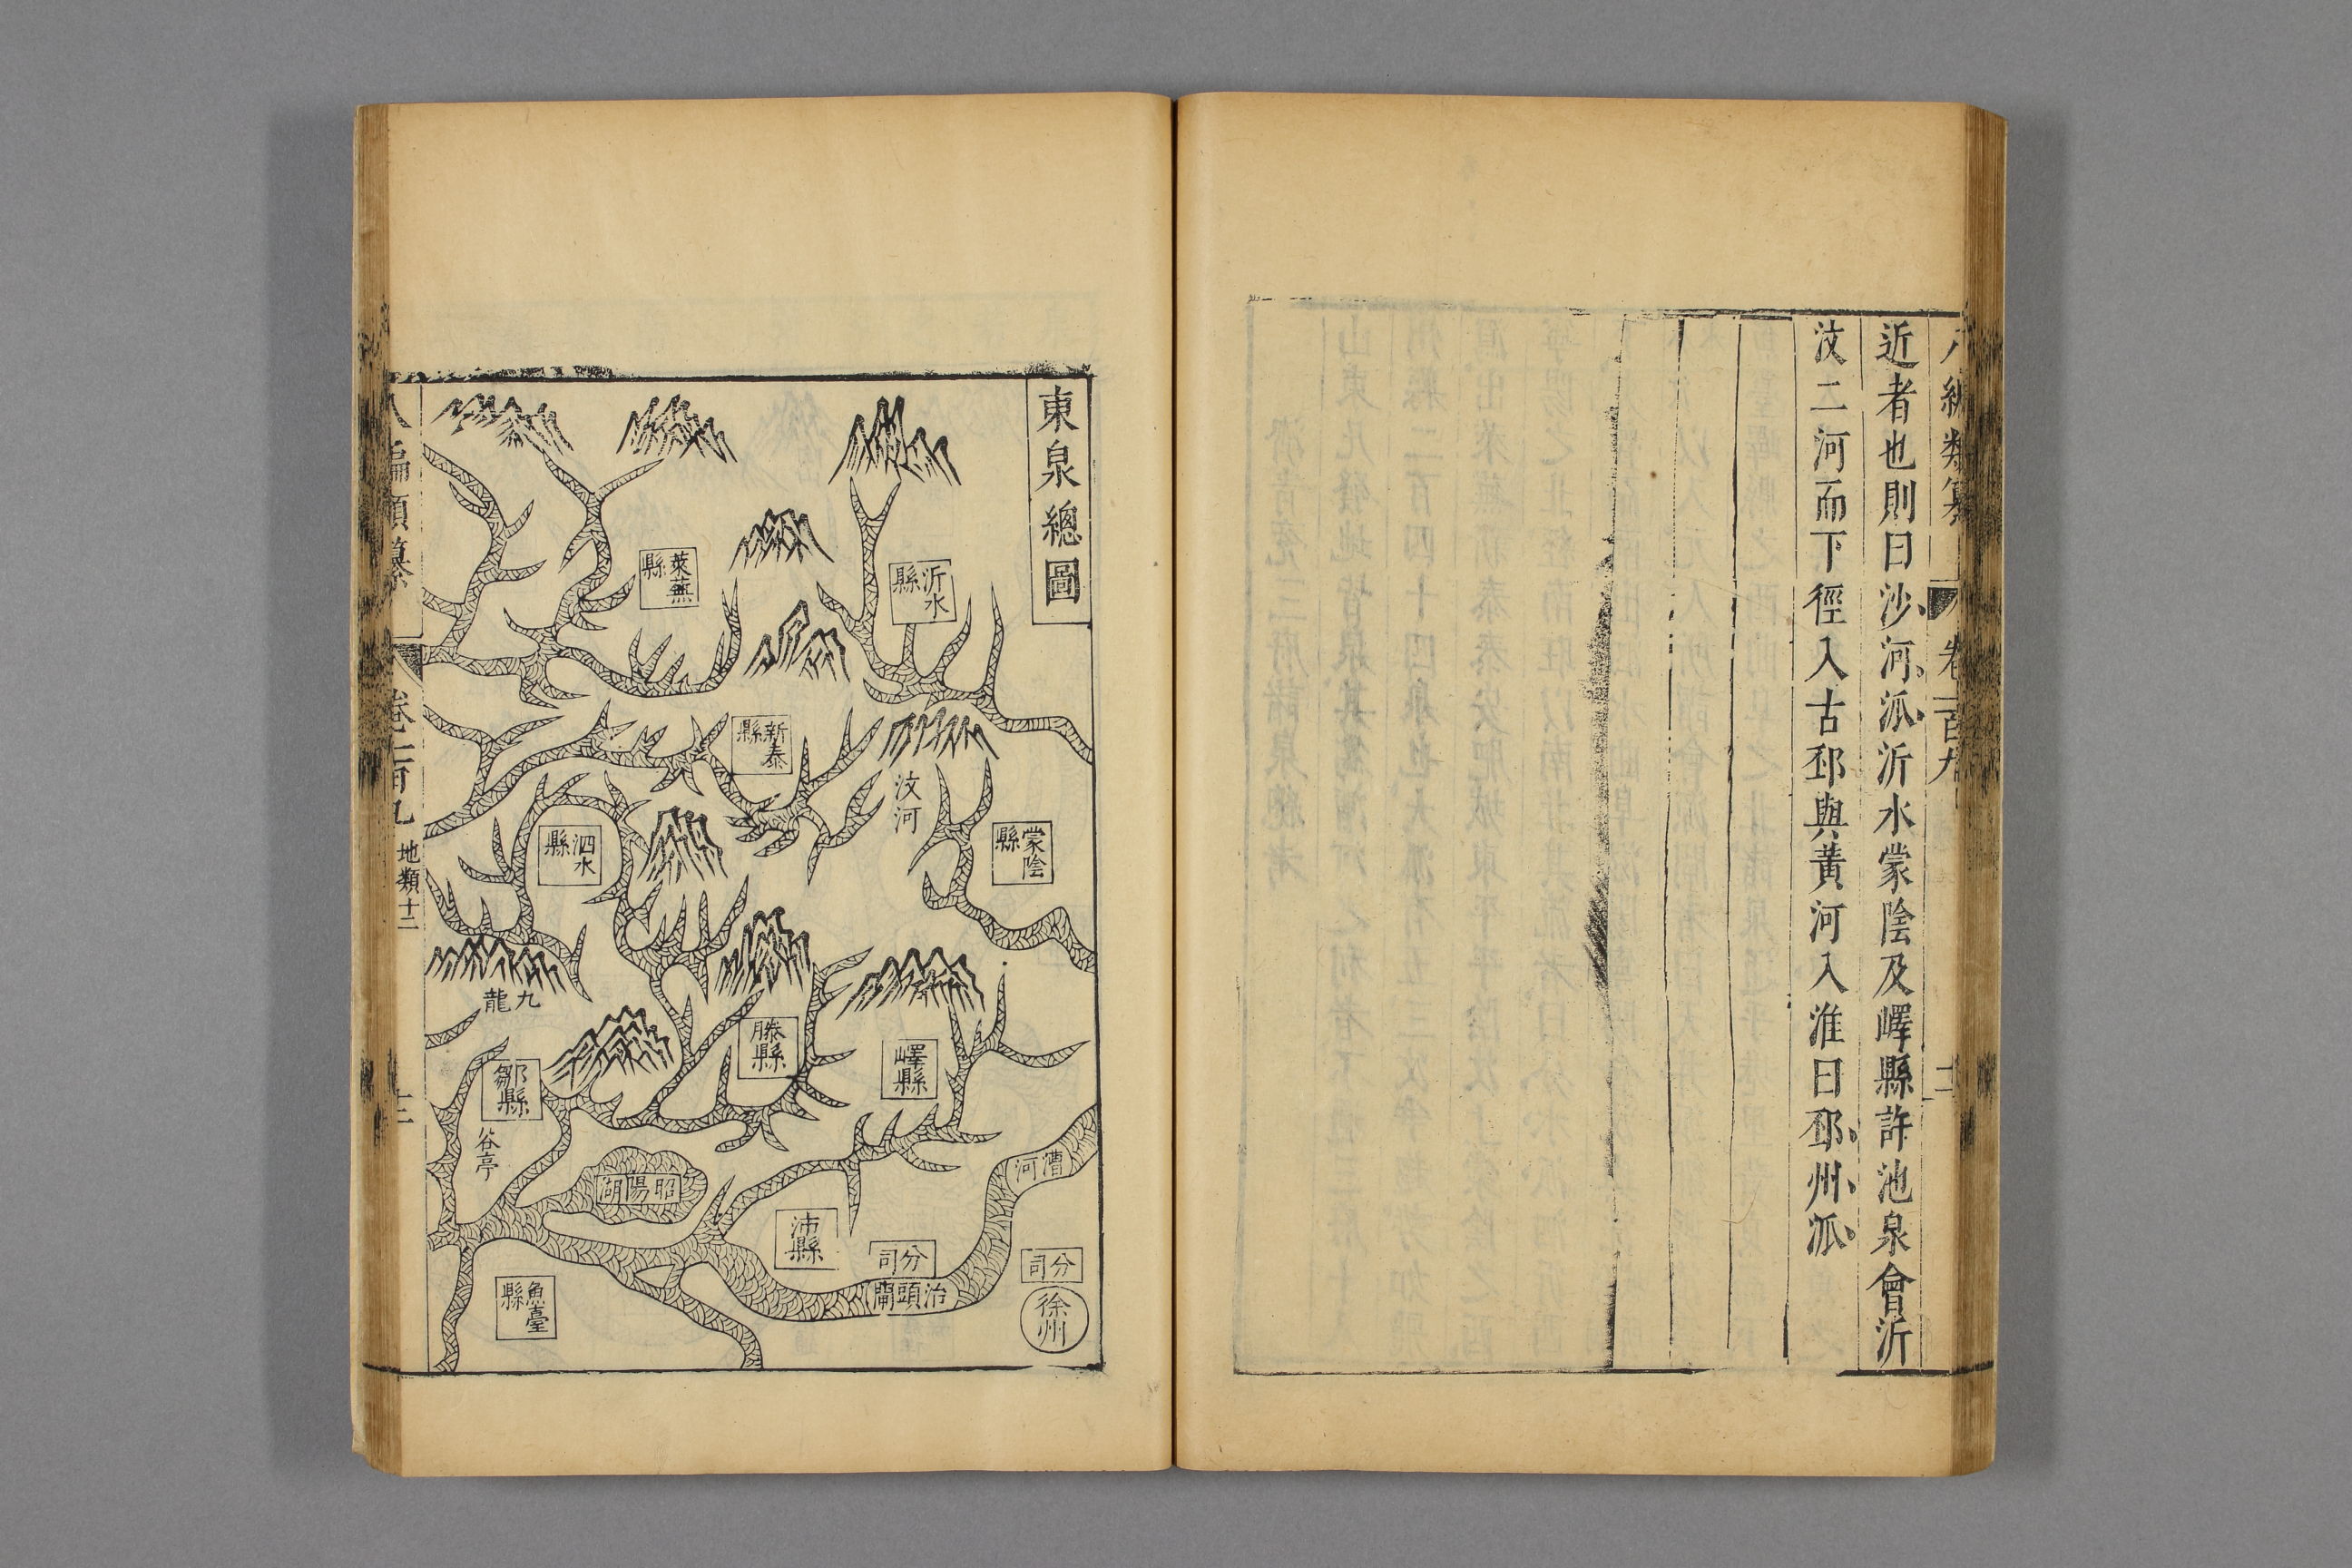 八編類纂 卷一百九 二
近者也則曰沙河派沂水蒙陰及嶧縣許池泉會沂
汶二河而下徑入古邳與黃河入淮曰邳州派
東泉總圖
沂水縣
萊蕪縣
新泰縣
汶河
蒙陰縣
泗水縣
九龍
滕縣
嶧縣
鄒縣
谷亭
漕河
昭陽湖
沛縣
分司
沽頭閘
分司
徐州
魚臺縣
八編類纂 卷一百九 地類十二 三